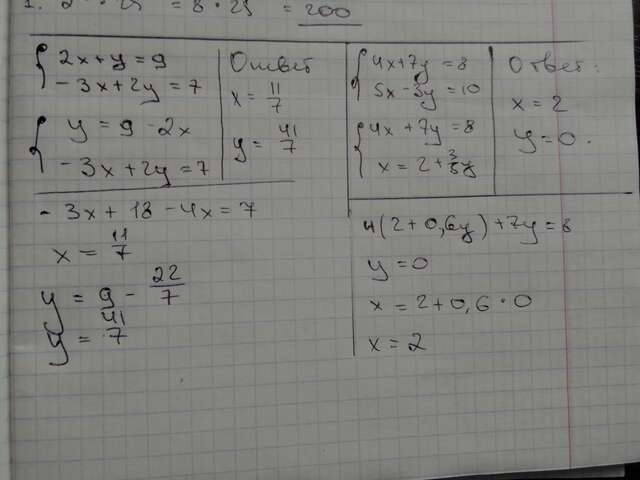 1. 2 · 25 = 8 · 25 = 200
2x+y=9
-3x+2y=7
y=9-2x
-3x+2y=7
Ответ
x=11/7
y=41/7
-3x+18-4x=7
x=11/7
y=9-22/7
y=41/7
4x+7y=8
5x-3y=10
4x+7y=8
x=2+3/5y
Ответ:
x=2
y=0.
4(2+0,6y)+7y=8
y=0
x=2+0,6·0
x=2